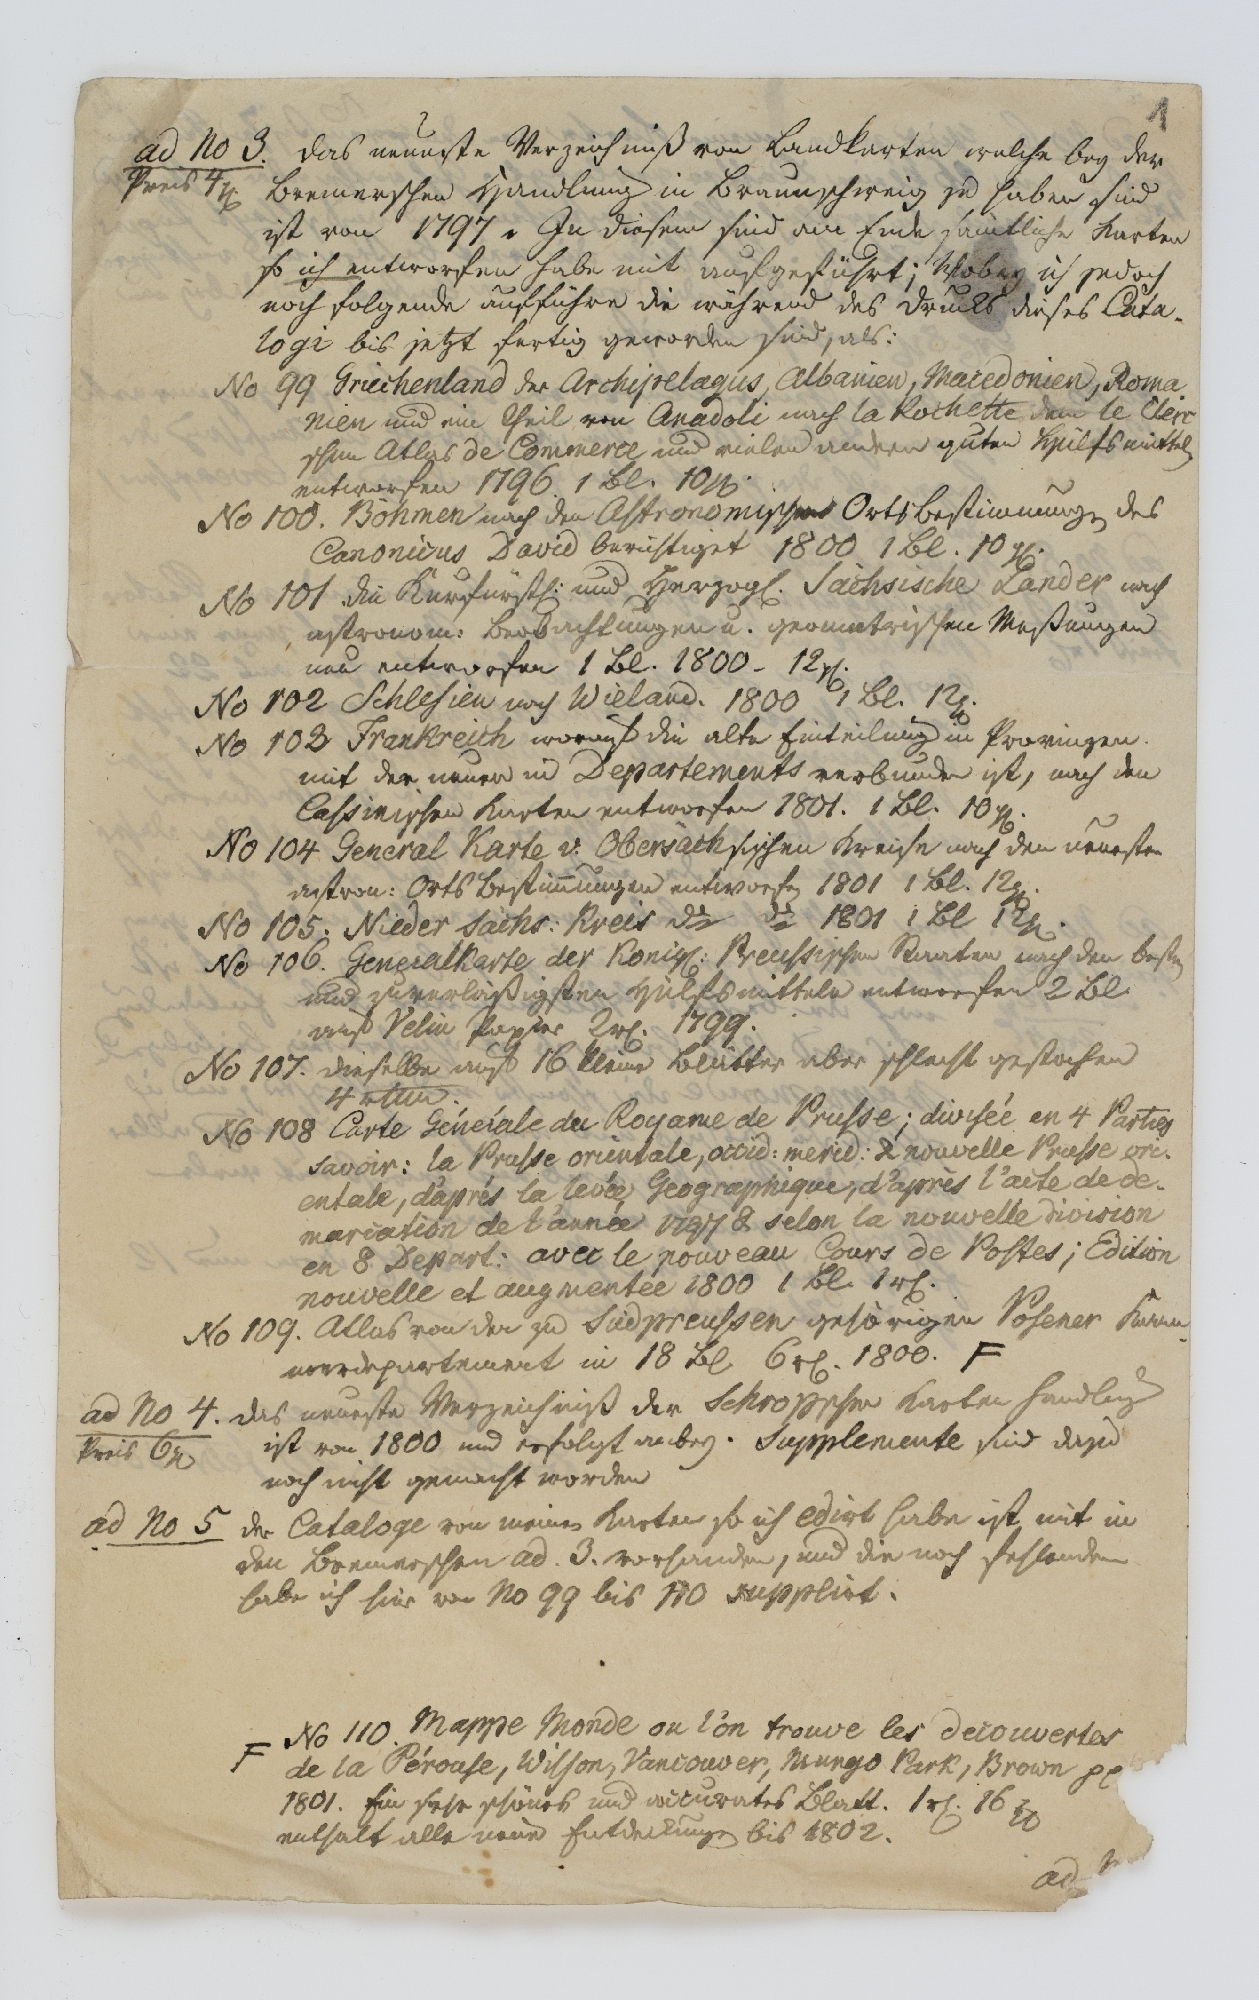 1
ad No 3. das neueste Verzeichniß von Landkarten welche bey der
Preis 4 Bremerschen Handlung in Braunschweig zu haben sind
ist von 1797. In diesem sind am Ende sämtliche Karten
so ich entworfen habe mit aufgeführt; Wobey ich jedoch
noch folgende aufführe die während des Drucks dieses Cata-
logi bis jetzt fertig geworden sind, als:
No 99 Griechenland der Archipelagus, Albanien, Macedonien, Roma
nien und ein Theil von Anadoli nach la Rochette dem le Clerc
schen Atlas de Commerce und vielen andern guten Hülfsmitteln
entworfen 1796. 1 Bl. 10 gg.
No 100. Böhmen nach den Astronomischen Ortsbestimmungen des
Canonicus David berichtiget 1800 1 Bl. 10 gg.
No 101 die Kurfürstl: und Herzogl. Sächsische Länder nach
astronom: Beobachtungen u. geometrischen Meßungen
neu entworfen 1 Bl. 1800 - 12 gg.
No 102 Schlesien nach Wieland. 1800 1 Bl. 12 g.
No 103 Frankreich worauf die alte Einteilung in Provinzen
mit der neuen in Departements verbunden ist, nach den
Cassinischen Karten entworfen 1801. 1 Bl. 10 gg.
No 104 General Karte v. Obersächsischen Kreise nach den neuesten
astron: Orts Bestimmungen entworfen 1801 1 Bl. 12 gg.
No 105. Nieder Sächs: Kreis do do 1801 1 Bl 12 g.
No 106. Generalkarte der Königl: Preussischen Staaten nach den besten
und zuverläßigsten Hülfsmitteln entworfen 2 Bl.
auf Velin Papier 2 rl. 1799.
No 107. dieselbe auf 16 kleine Blätter aber schlecht gestochen
4 rthlr.
No 108 Carte Génerale du Royame de Prusse; divisée en 4 Parties
savoir: la Prusse orientale, occid: merid: & nouvelle Prusse ori-
entale, d'aprés la levée Geographique, d'aprés l'acte de de-
marcation de l'année 1797 & selon la nouvelle division
en 8 Depart: avec le nouveau Cours de Postes; Edition
nouvelle et augmentée 1800 1 Bl. 1 rl.
No 109. Atlas von der zu Südpreussen gehörigen Posener Kam-
merdepartement in 18 Bl. 6 rl. 1800. F
ad No 4. das neueste Verzeichniß der Schroppschen Karten Handlung
Preis 6 ist von 1800 und erfolgt anbey. Supplemente sind dazu
noch nicht gemacht worden
ad No 5 der Cataloge von meinen Karten so ich edirt habe ist mit in
den Bremerschen ad. 3. vorhanden, und die noch fehlenden
habe ich hier von No 99 bis 110 supplirt.
F No 110. Mappe Monde ou l'on trouve les decouvertes
de la Pérouse, Wilson, Vancouver, Mungo Park, Brown pp
1801. Ein sehr schönes und accurates Blatt. 1 rl. 16 gg
enthält alle neue Entdeckungen bis 1802.
ad